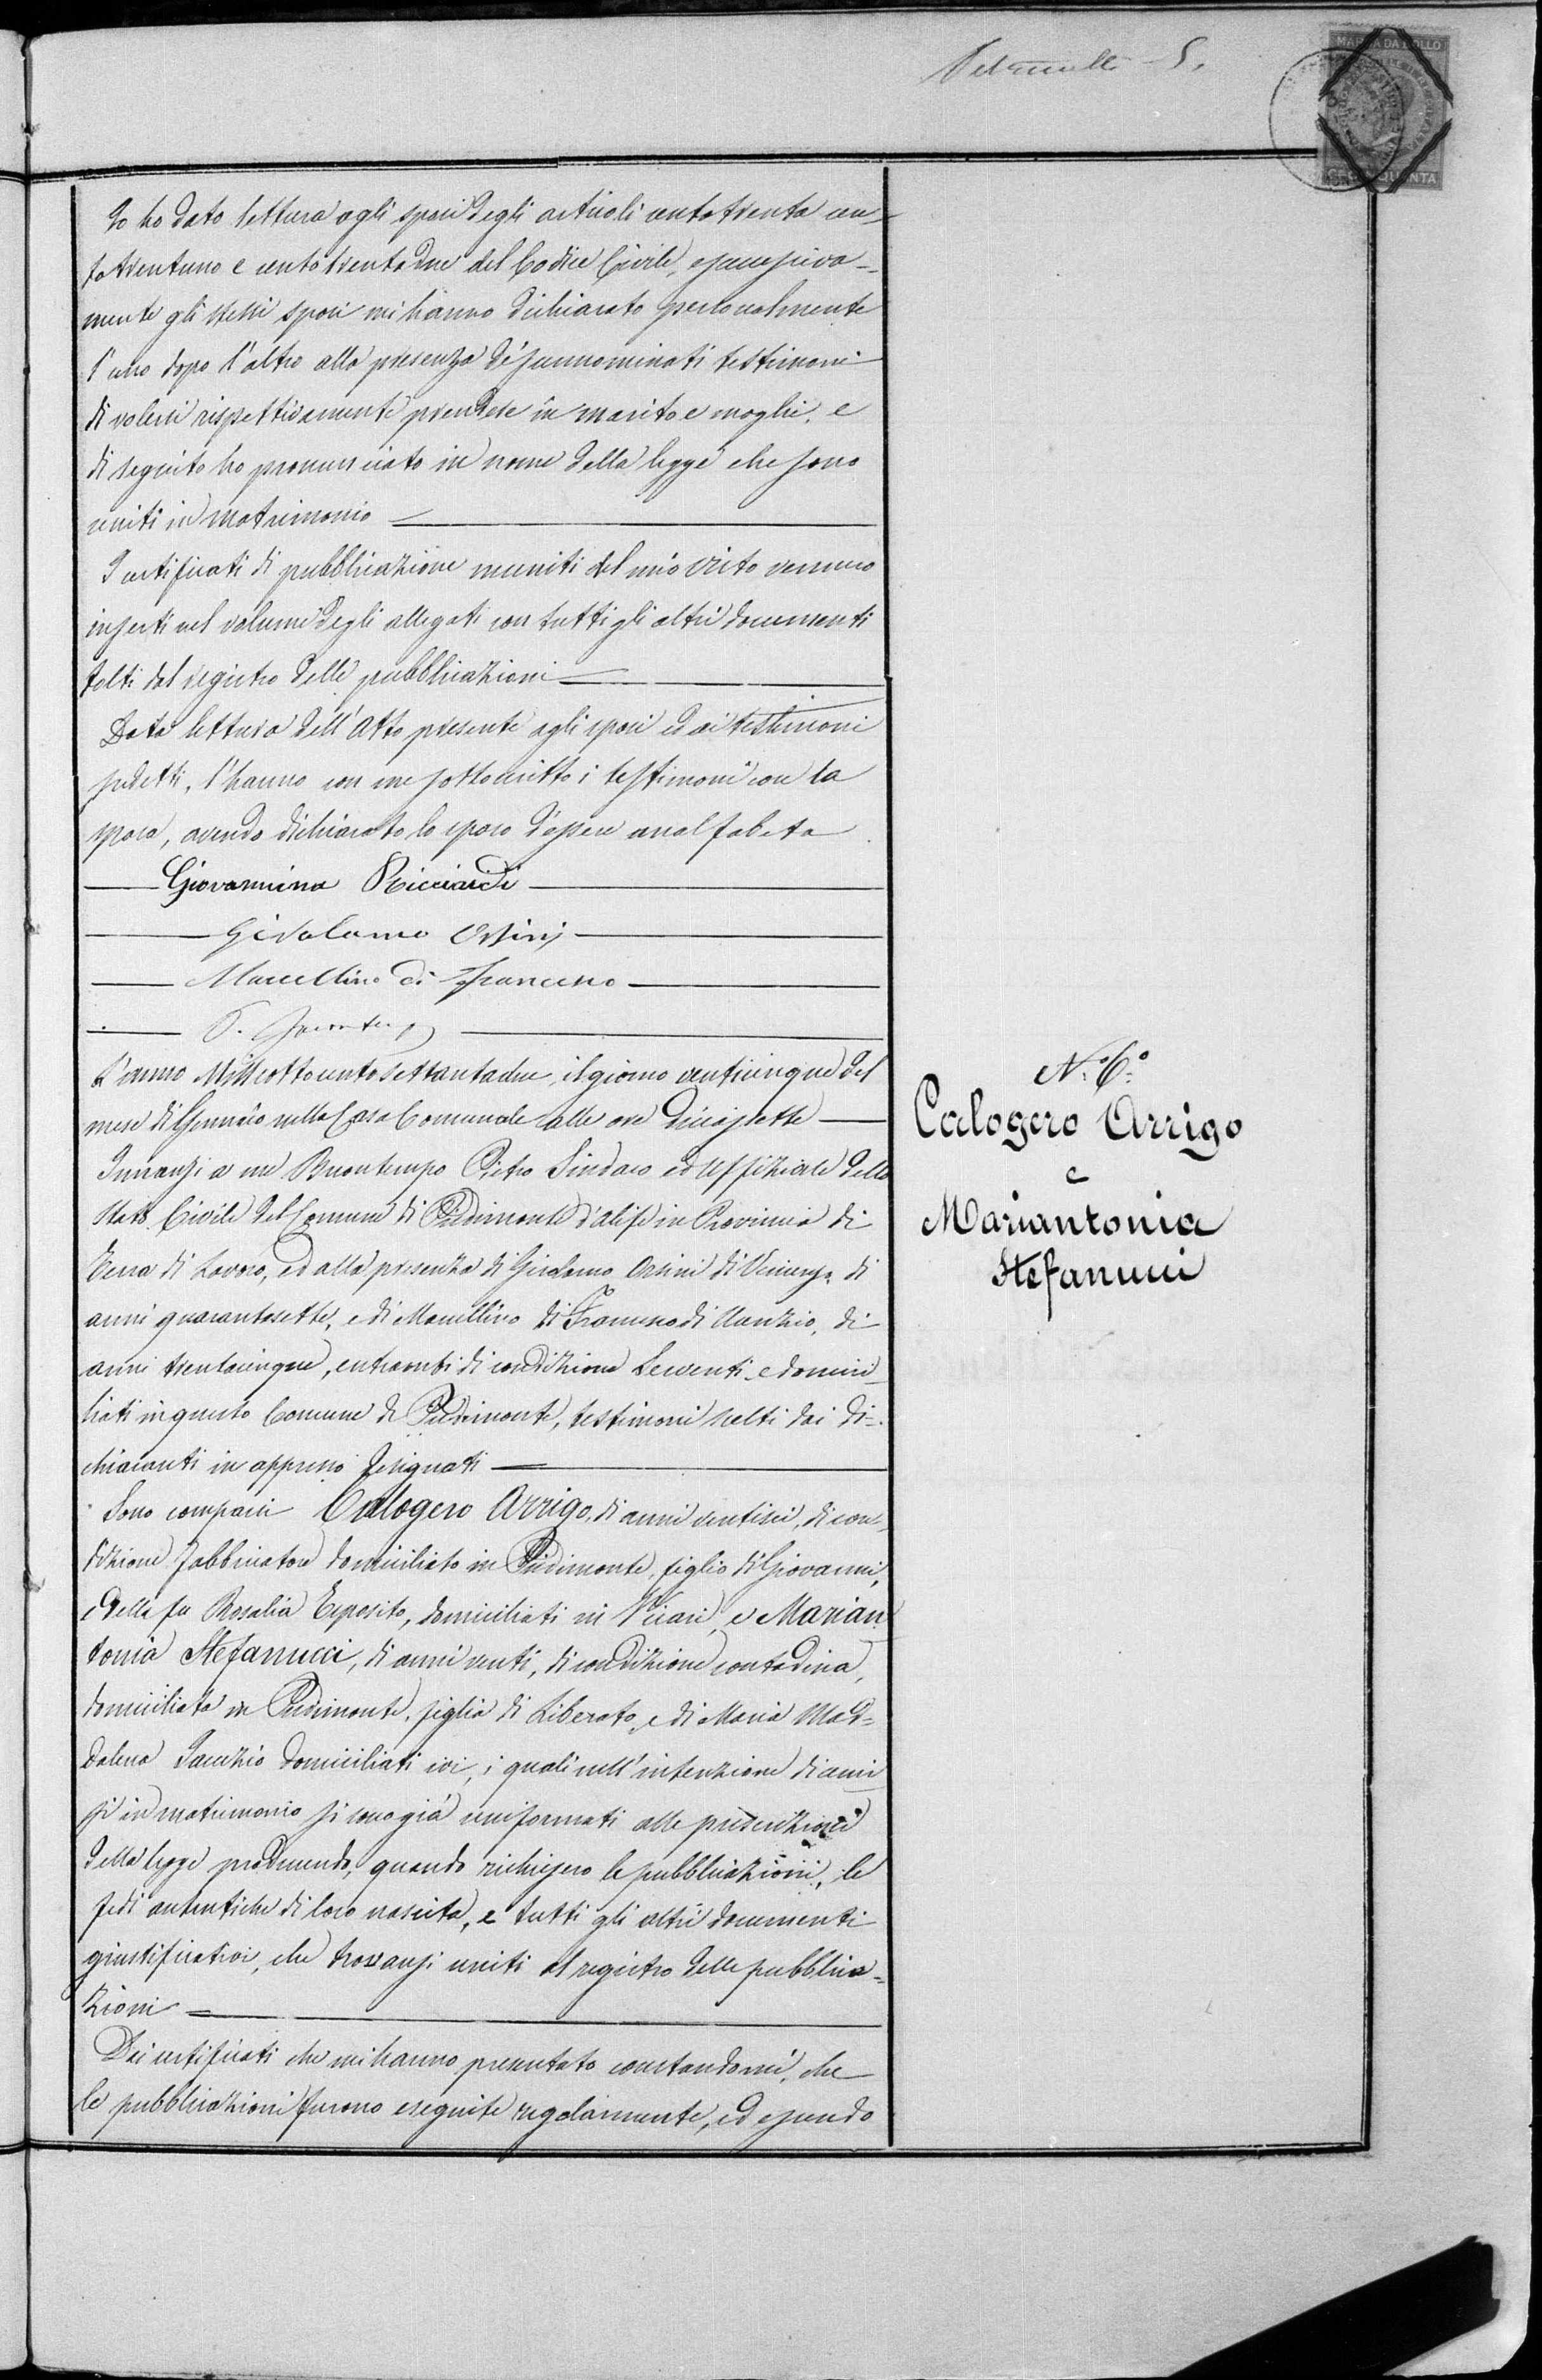 MARCA DA BOLLO
Io ho dato lettura agli sposi degli articoli centotrenta cen-
totrentuno e centotrentadue del Codice Civile, e successiva-
mente gli stessi sposi mi hanno dichiarato personalmente
l'uno dopo l'altro alla presenza de' sunnominati testimoni
di volersi rispettivamente prendere in marito e moglie, e
di seguito ho pronunciato in nome della legge che sono
uniti in matrimonio
I certificati di pubblicazione muniti del mio visto vennero
inserti nel volume degli allegati con tutti gli altri documenti
tolti dal registro delle pubblicazioni
Data lettura dell'atto presente agli sposi ed ai testimoni
sudetti, l'hanno con me sottoscritto i testimoni con la
sposa, avendo dichiarato lo sposo d'essere analfabeta
Giovannina Ricciardi
Girolamo Orsini
Marcellino di Francesco
L'anno Milleottocentosettantadue, il giorno venticinque del
mese di Gennaio nella Casa Comunale alle ore diciassette
Innanzi a me Buontempo Pietro Sindaco ed Uffiziale dello
Stato Civile del Comune di Piedimonte d'Alife in Provincia di
Terra di Lavoro, ed alla presenza di Girolamo Orsini di Vincenzo, di
anni quarantasette, e di Marcellino di Francesco di Nunzio, di
anni trentacinque, entrambi di condizione Serventi e domici-
liati in questo Comune di Piedimonte, testimoni scelti dai di-
chiaranti in appresso designati
Sono comparsi Calogero Arrigo, di anni ventisei, di con-
dizione Fabbricatore domiciliato in Piedimonte, figlio di Giovanni,
e della fu Rosalia Esposito, domiciliati in Vicari, e Marian-
tonia Stefanucci, di anni venti, di condizione contadina,
domiciliata in Piedimonte, figlia di Liberato, e di Maria Mad-
dalena domiciliati ivi, i quali nell'intenzione di unir
si in matrimonio si sono già uniformati alle prescrizioni
della legge producendo, quando richiesero le pubblicazioni, le
fedi autentiche di loro nascita, e tutti gli altri documenti
giustificativi, che trovansi uniti al registro delle pubblica-
zioni
Dai certificati che mi hanno presentato constandomi, che
le pubblicazioni furono eseguite regolarmente, ed essendo
N.º 6º
Calogero Arrigo
e
Mariantonia
Stefanucci